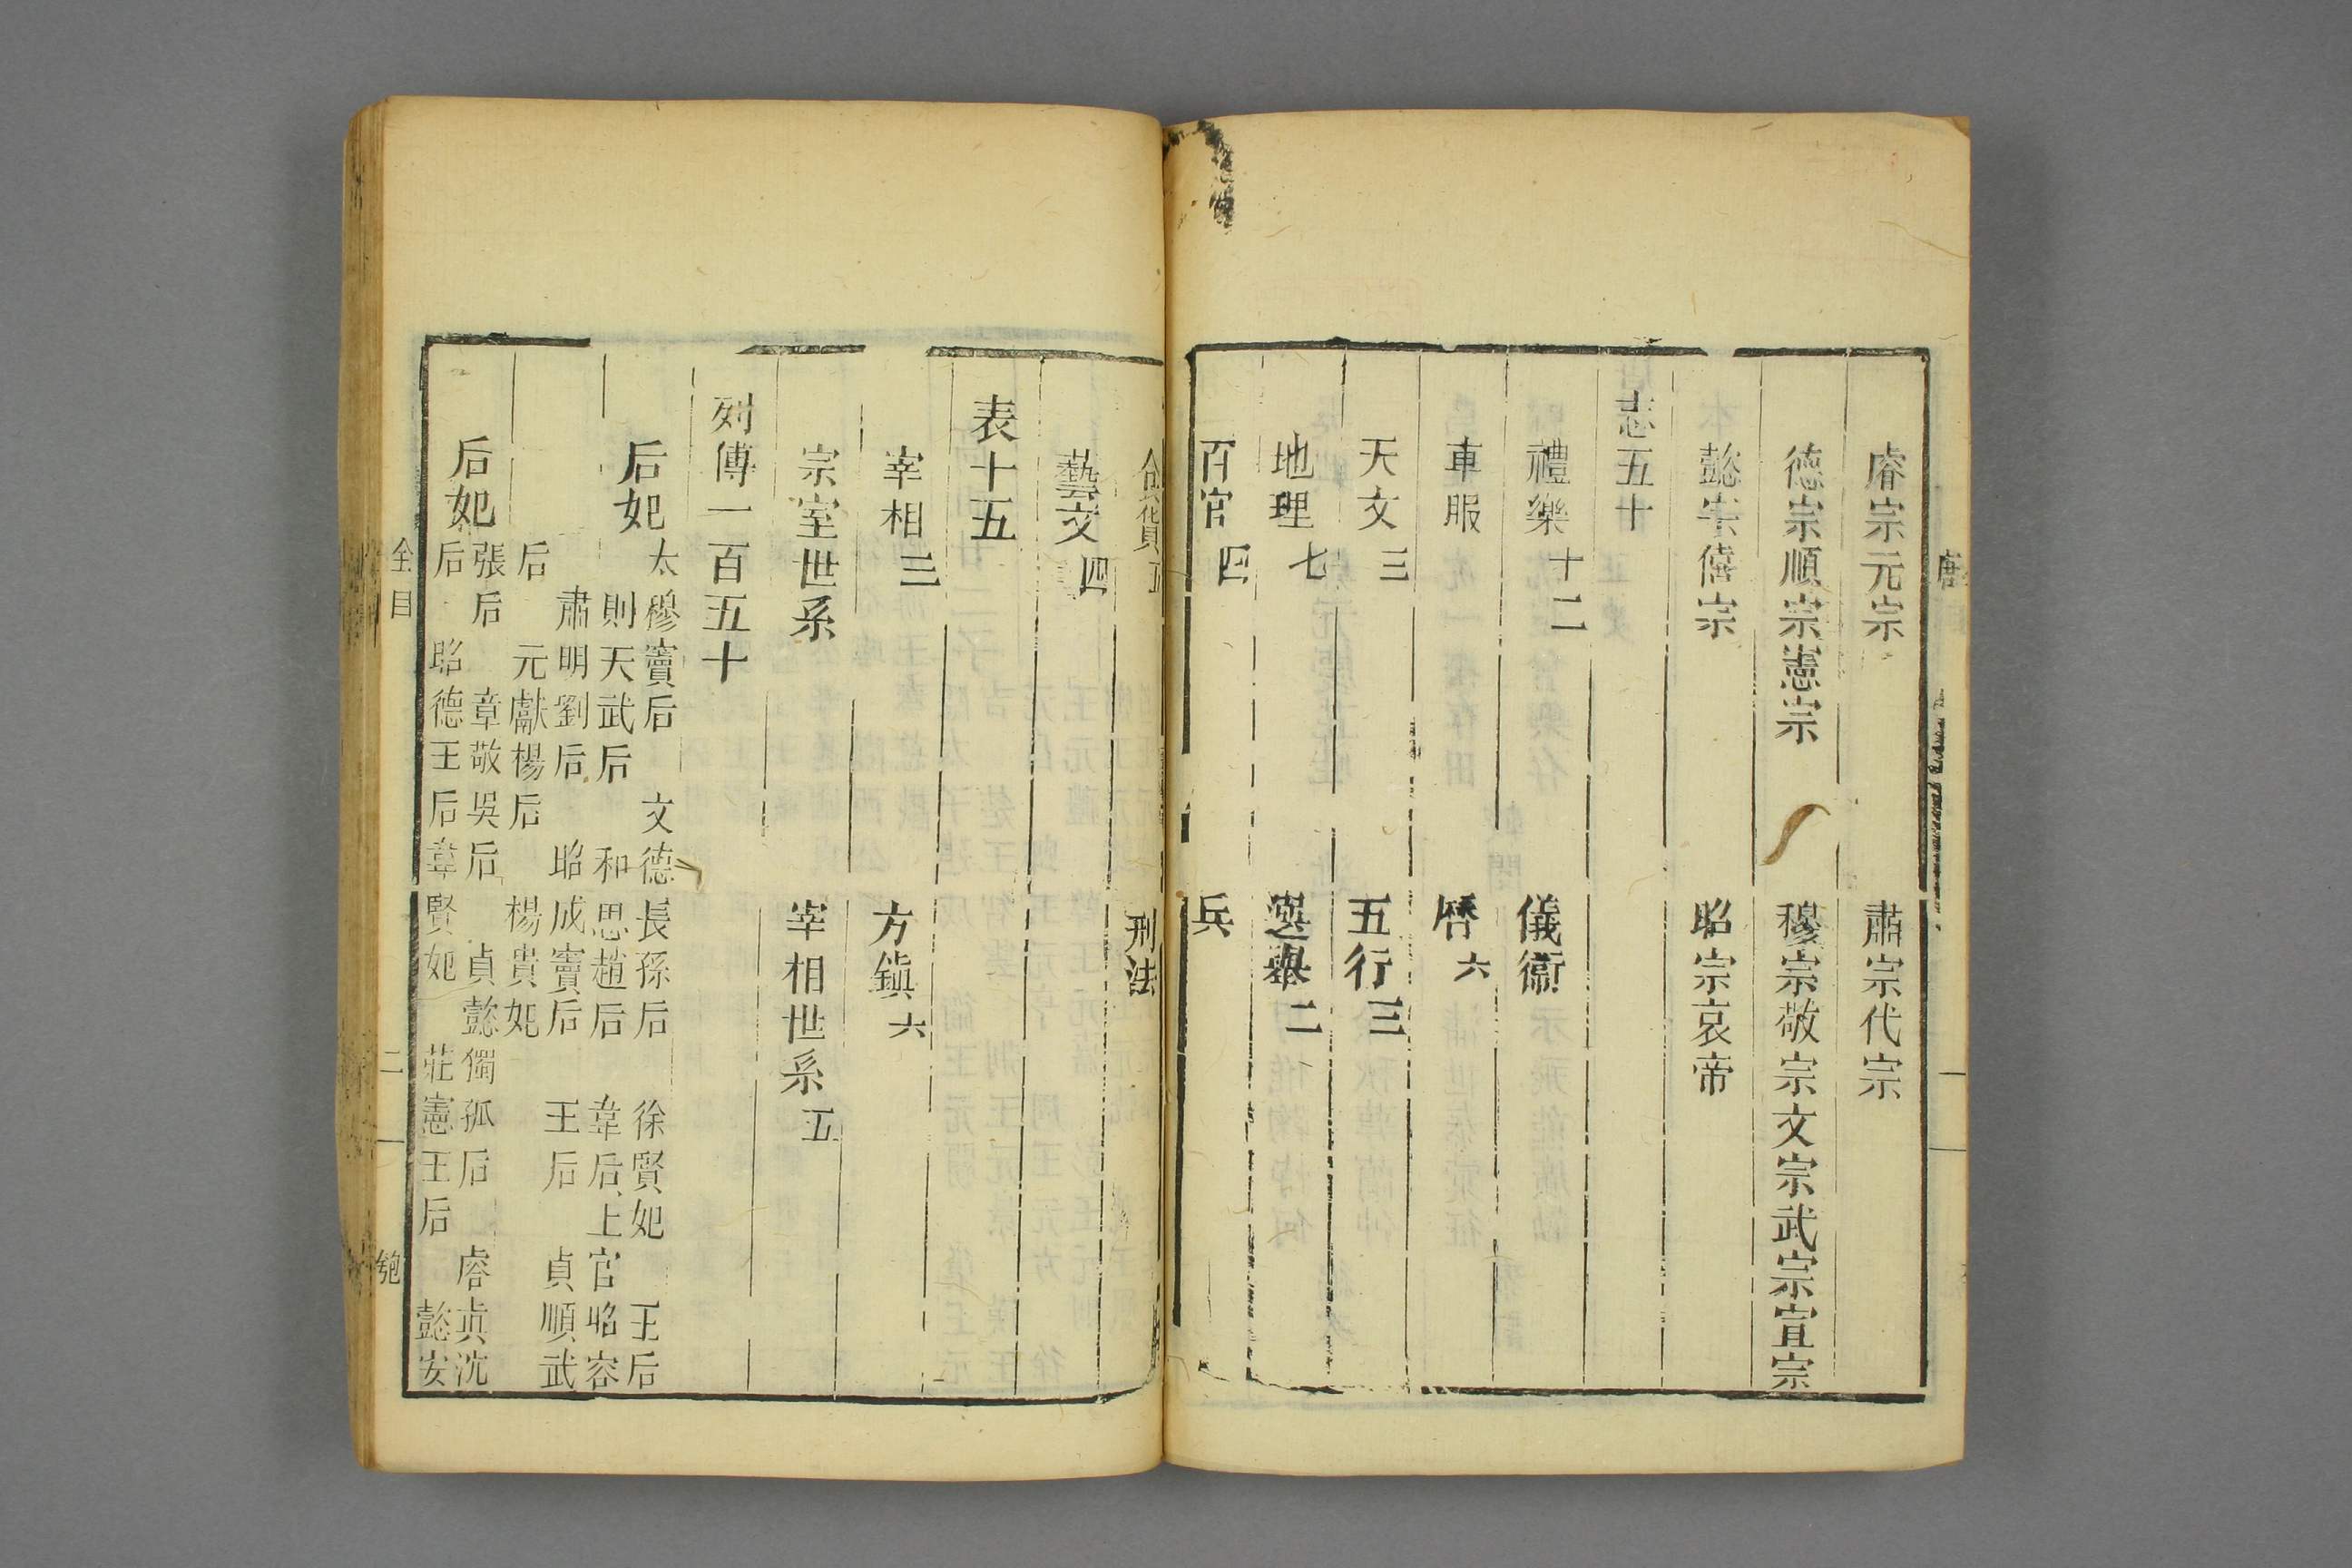 睿宗元宗 肅宗代宗
德宗順宗憲宗 穆宗敬宗文宗武宗宣宗
懿宗僖宗 昭宗哀帝
志五十
禮樂十二 儀衞
車服 曆六
天文三 五行三
地理七 選舉二
百官四 兵
食貨五 刑法
藝文四
表十五
宰相三 方鎮六
宗室世系 宰相世系五
列傳一百五十
后妃
太穆竇后 文德長孫后 徐賢妃 王后
則天武后 和思趙后 韋后上官昭容
肅明劉后 昭成竇后 王后 貞順武
后 元獻楊后 楊貴妃
后妃
張后 章敬吳后 貞懿獨孤后 睿真沈
后 昭德王后韋賢妃 莊憲王后 懿安
全目
二
唐